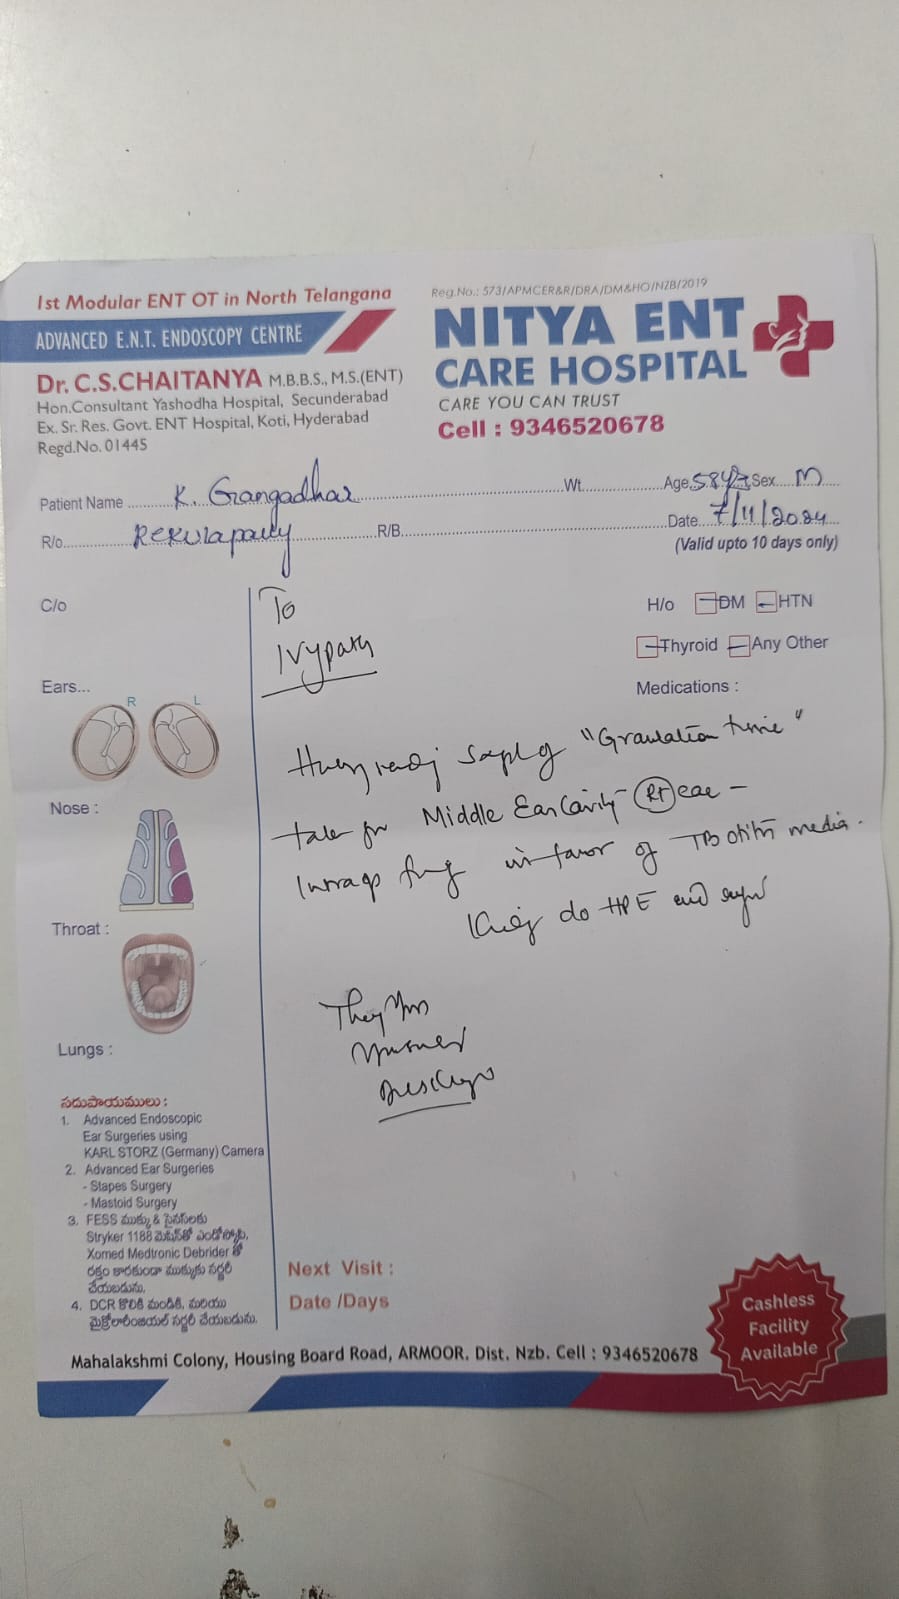 1st Modular ENT OT in North Telangana
ADVANCED E.N.T. ENDOSCOPY CENTRE
Dr. C.S.CHAITANYA M.B.B.S., M.S.(ENT)
Hon.Consultant Yashodha Hospital, Secunderabad
Ex. Sr. Res. Govt. ENT Hospital, Koti, Hyderabad
Regd.No. 01445
Reg.No.: 573/APMCER&R/DRA/DM&HO/NZB/2019
NITYA ENT
CARE HOSPITAL
CARE YOU CAN TRUST
Cell : 9346520678
Patient Name K. Gangadhar Wt. Age 58 Sex M
R/o. Rekulapally R/B. Date 7/11/2024
(Valid upto 10 days only)
C/o
Ears...
R L
Nose :
Throat :
Lungs :
To
H/o DM HTN
Thyroid Any Other
Medications :
"Granulation
Middle Ear Cavity Rt ear -
in favor of TB otitis media.
do HPE and
సదుపాయములు :
1. Advanced Endoscopic
Ear Surgeries using
KARL STORZ (Germany) Camera
2. Advanced Ear Surgeries
- Stapes Surgery
- Mastoid Surgery
3. FESS ముక్కు & సైనస్‌లకు
Stryker 1188
Xomed Medtronic Debrider తో
రక్తం కారకుండా ముక్కుకు సర్జరీ
చేయబడును.
4. DCR మరియు
సర్జరీ చేయబడును.
Next Visit :
Date /Days
Cashless
Facility
Available
Mahalakshmi Colony, Housing Board Road, ARMOOR. Dist. Nzb. Cell : 9346520678